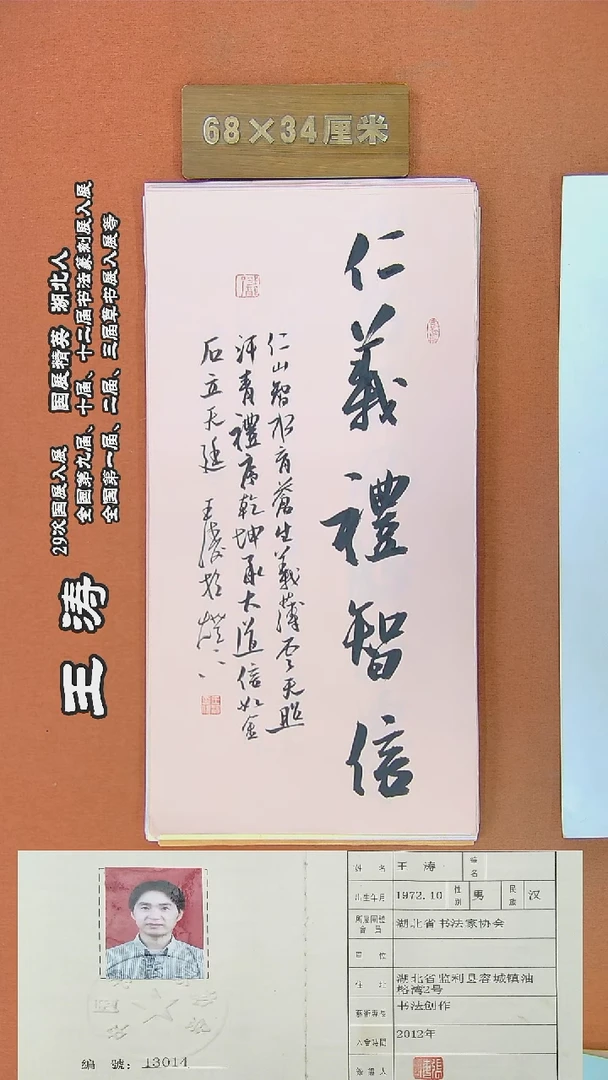 68×34厘米
仁義禮智信
仁山智水育蒼生義薄雲天照
汗青禮序乾坤承大道信如金
石立天廷 王濤
王涛
29次国展入展 国展精英 湖北人
全国第九届、十届、十二届书法篆刻展入展
全国第一届、二届、三届草书展入展等
姓 名 王 涛
出生年月 1972.10 性别 男 民族 汉
湖北省书法家协会
單 位
住 址 湖北省监利县容城镇油
榨湾2号
书法创作
入會時間 2012年
编 號: 13014